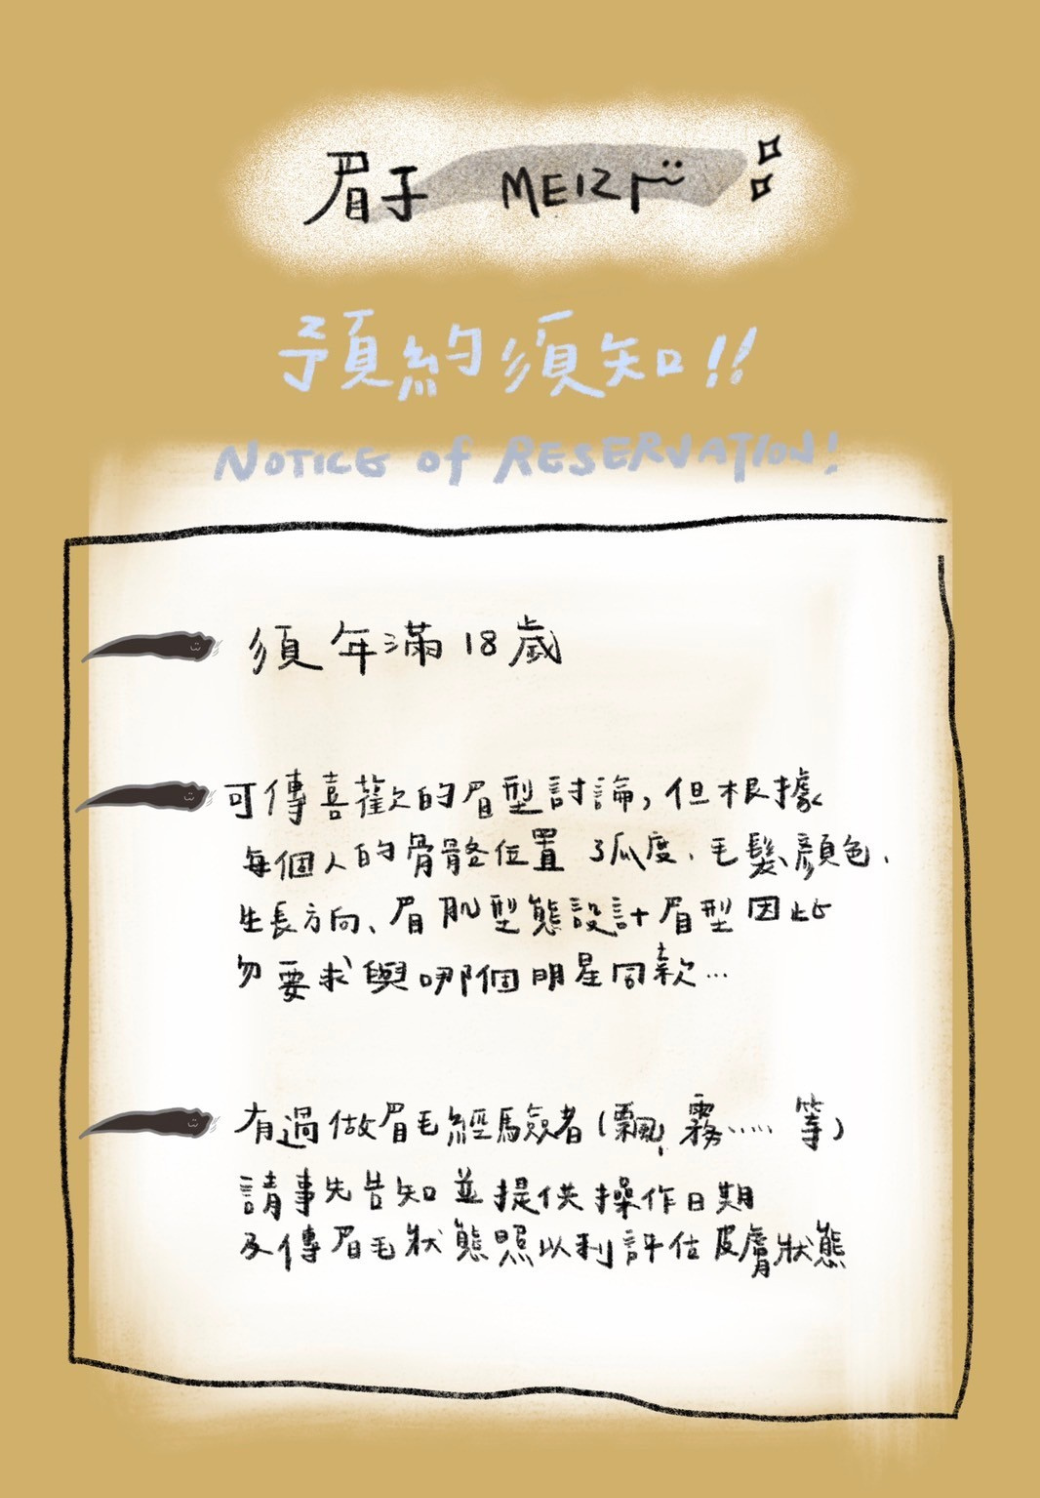 眉子 MEIZI
預約須知!!
NOTICE of RESERVATION!
須年滿18歲
可傳喜歡的眉型討論,但根據
每個人的骨骼位置 弧度、毛髮顏色、
生長方向、眉肌型態設計眉型因此
勿要求與哪個明星同款...
有過做眉毛經驗者(飄,霧...... 等)
請事先告知並提供操作日期
及傳眉毛狀態照以利評估皮膚狀態